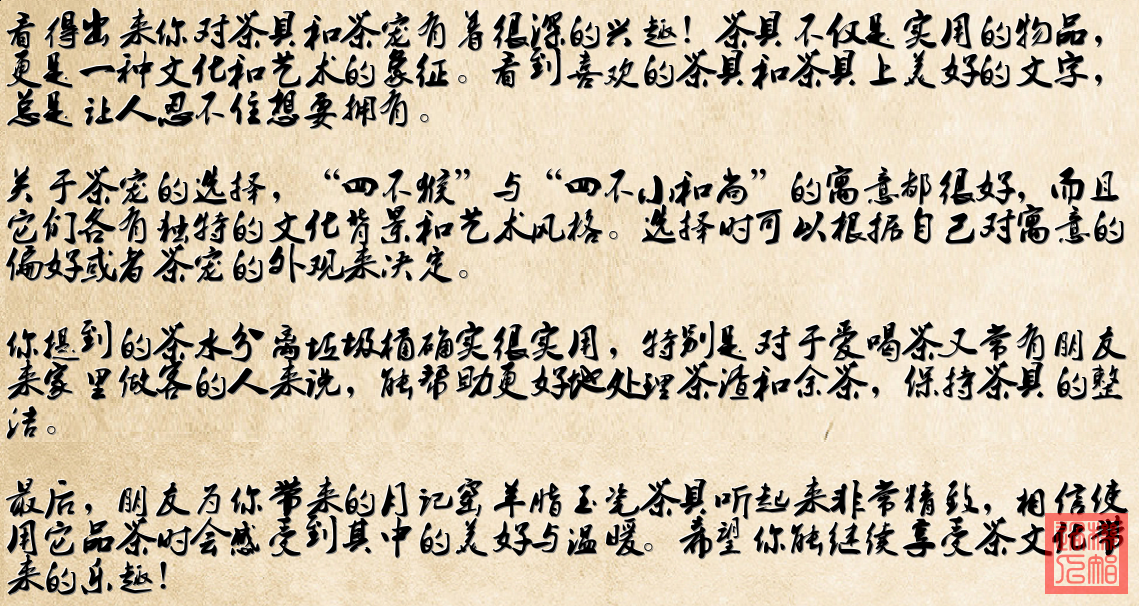 看得出来你对茶具和茶宠有着很深的兴趣！茶具不仅是实用的物品，
更是一种文化和艺术的象征。看到喜欢的茶具和茶具上美好的文字，
总是让人忍不住想要拥有。
关于茶宠的选择，“四不猴”与“四不小和尚”的寓意都很好，而且
它们各有独特的文化背景和艺术风格。选择时可以根据自己对寓意的
偏好或者茶宠的外观来决定。
你提到的茶水分离垃圾桶确实很实用，特别是对于爱喝茶又常有朋友
来家里做客的人来说，能帮助更好地处理茶渣和余茶，保持茶具的整
洁。
最后，朋友为你带来的月记窑羊脂玉瓷茶具听起来非常精致，相信使
用它品茶时会感受到其中的美好与温暖。希望你能继续享受茶文化带
来的乐趣！